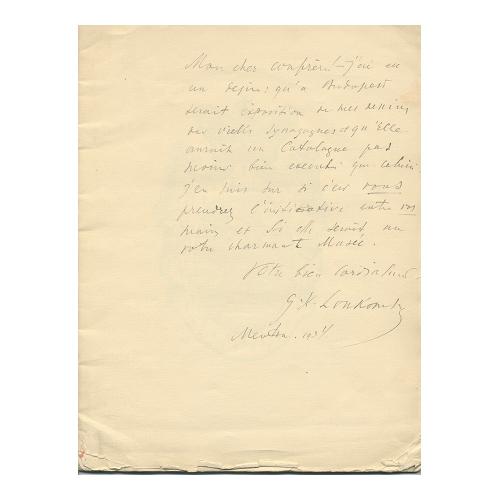 Mon cher confrère! – j'ai eu
un désir; qu'a Budapest
serait exposition de mes dessins
des vieilles synagogues et qu'elle
aurait un Catalogue pas
moins bien executé que celui-ci
j'en suis sur si c'est vous
prendrez l'initiative entre vos
mains et si elle serait au
votre charmante Musée.
Votre bien cordialement
G. K. Loukomski
Menton. 193